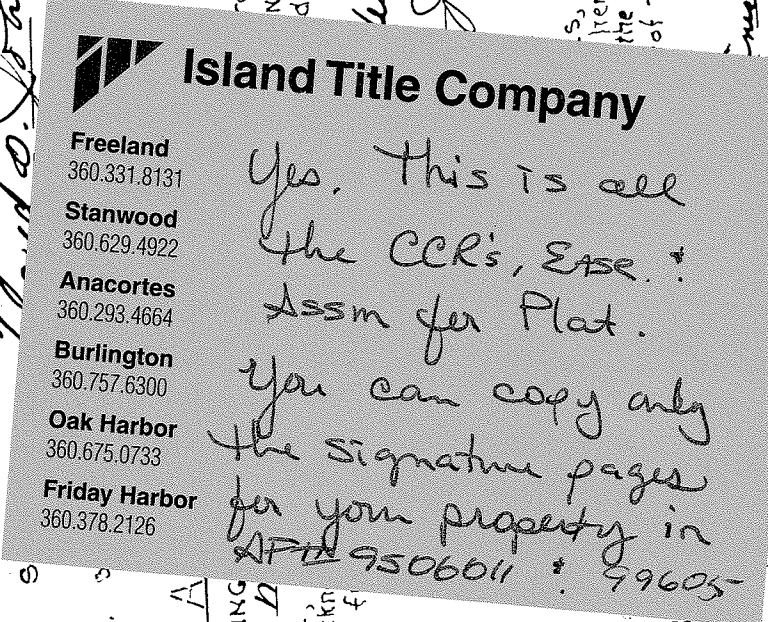 Island Title Company
Freeland
360.331.8131
Stanwood
360.629.4922
Anacortes
360.293.4664
Burlington
360.757.6300
Oak Harbor
360.675.0733
Friday Harbor
360.378.2126
Yes. This is all
the CCR's, Ease. &
Assm for Plat.
You can copy only
the signature pages
for your property in
AF# 9506011 & 99605